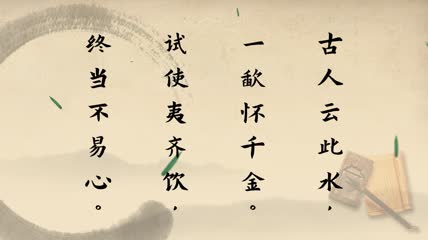 古人云此水，
一歃怀千金。
试使夷齐饮，
终当不易心。